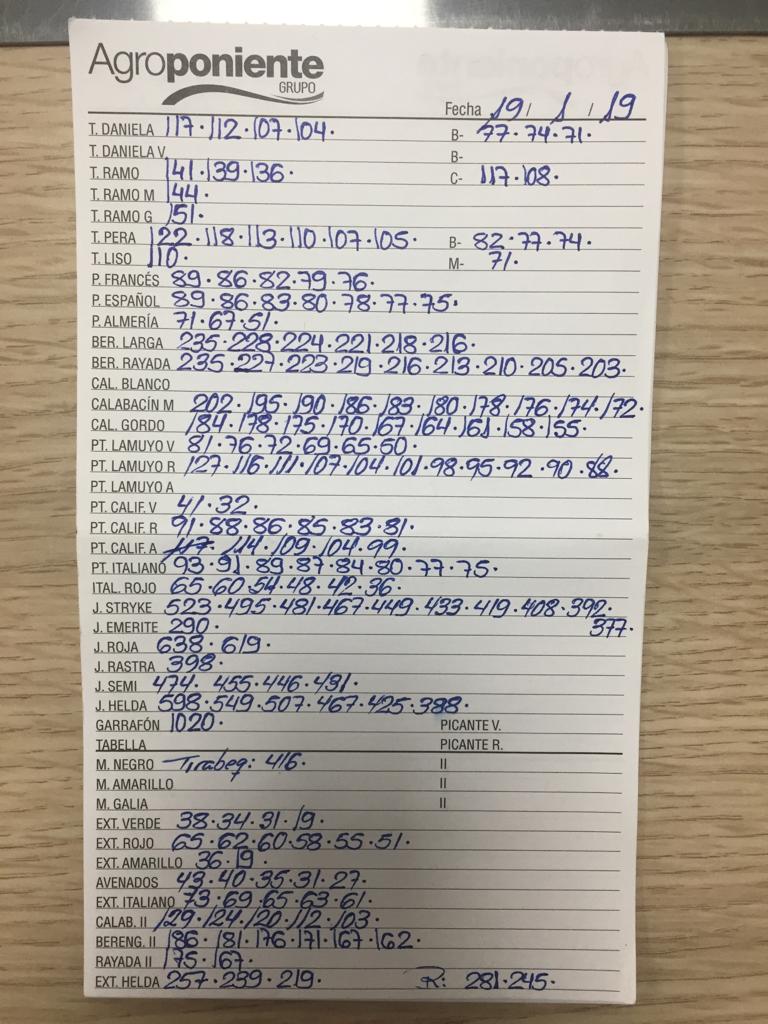 Agroponiente
GRUPO
Fecha 19 / 1 / 19
T. DANIELA 117·112·107·104· B- 77·74·71·
T. DANIELA V. B-
T. RAMO 141·139·136· C- 117·108·
T. RAMO M 144·
T. RAMO G 151·
T. PERA 122·118·113·110·107·105· B- 82·77·74·
T. LISO 110· M- 71·
P. FRANCÉS 89·86·82·79·76·
P. ESPAÑOL 89·86·83·80·78·77·75·
P. ALMERÍA 71·67·51·
BER. LARGA 235·228·224·221·218·216·
BER. RAYADA 235·227·223·219·216·213·210·205·203·
CAL. BLANCO
CALABACÍN M 202·195·190·186·183·180·178·176·174·172·
CAL. GORDO 184·178·175·170·167·164·161·158·155·
PT. LAMUYO V 81·76·72·69·65·50·
PT. LAMUYO R 127·116·111·107·104·101·98·95·92·90·88·
PT. LAMUYO A
PT. CALIF. V 41·32·
PT. CALIF. R 91·88·86·85·83·81·
PT. CALIF. A 117· 114·109·104·99·
PT. ITALIANO 93·91·89·87·84·80·77·75·
ITAL. ROJO 65·60·54·48·42·36·
J. STRYKE 523·495·481·467·449·433·419·408·392·
J. EMERITE 290· 377·
J. ROJA 638·619·
J. RASTRA 398·
J. SEMI 474· 455·446·431·
J. HELDA 598·549·507·467·425·388·
GARRAFÓN 1020· PICANTE V.
TABELLA PICANTE R.
M. NEGRO Tirabeq: 416· II
M. AMARILLO II
M. GALIA II
EXT. VERDE 38·34·31·19·
EXT. ROJO 65·62·60·58·55·51·
EXT. AMARILLO 36·19·
AVENADOS 43·40·35·31·27·
EXT. ITALIANO 73·69·65·63·61·
CALAB. II 129·124·120·112·103·
BERENG. II 186·181·176·171·167·162·
RAYADA II 175·167·
EXT. HELDA 257·239·219· R: 281·245·